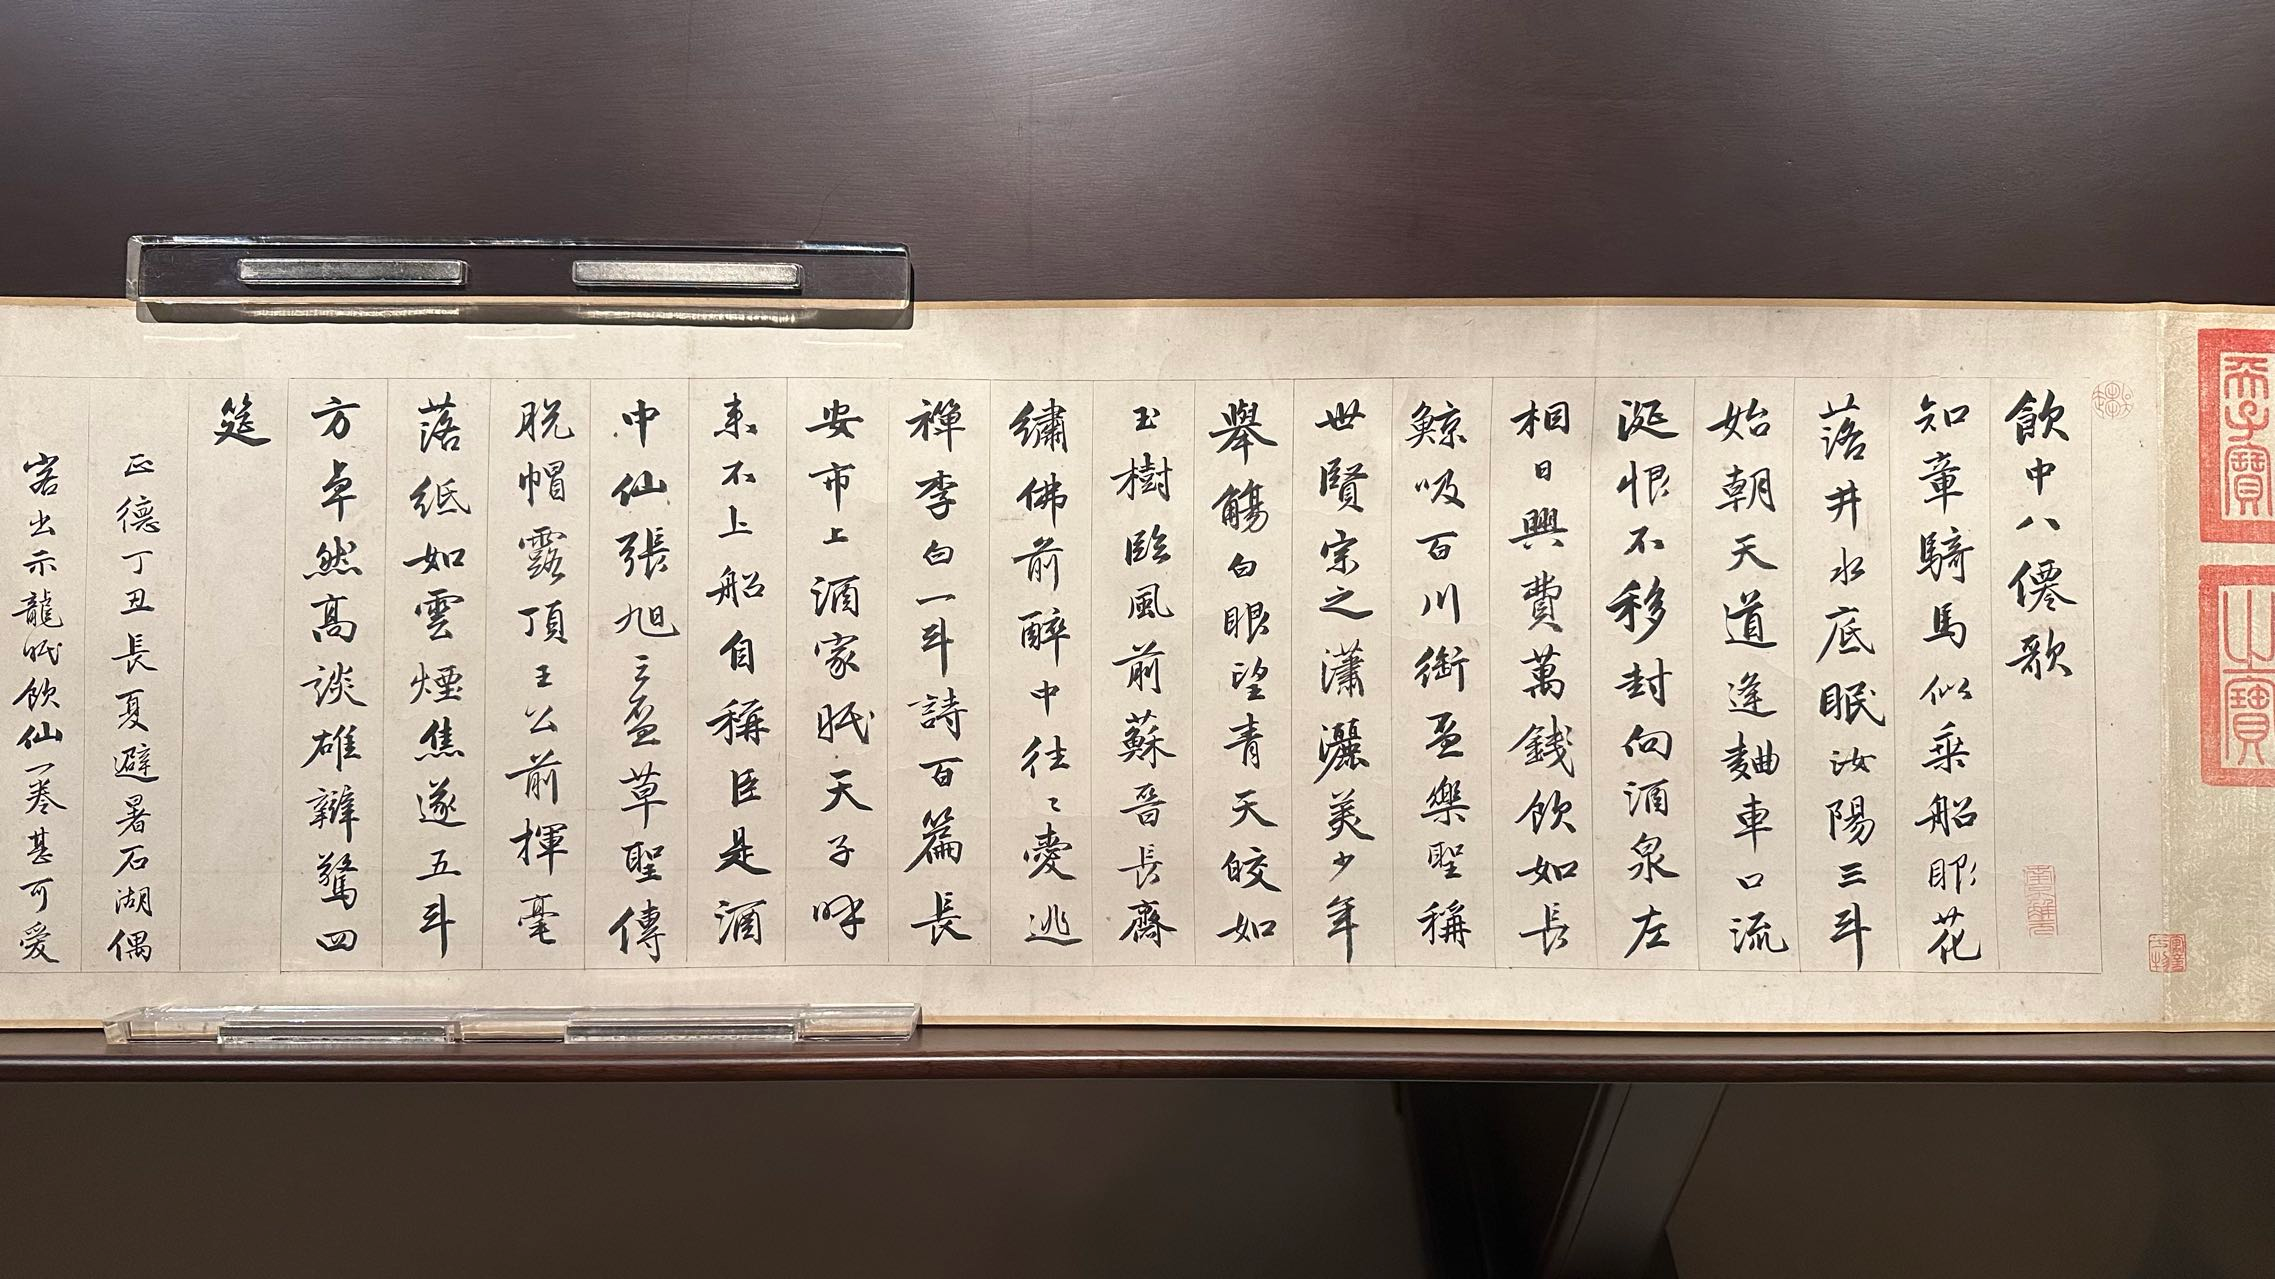 飲中八僊歌
知章騎馬似乘船眼花
落井水底眠汝陽三斗
始朝天道逢麯車口流
涎恨不移封向酒泉左
相日興費萬錢飲如長
鯨吸百川銜盃樂聖稱
世賢宗之瀟灑美少年
舉觴白眼望青天皎如
玉樹臨風前蘇晉長齋
繡佛前醉中往〻愛逃
禪李白一斗詩百篇長
安市上酒家眠天子呼
來不上船自稱臣是酒
中仙張旭三盃草聖傳
脫帽露頂王公前揮毫
落紙如雲煙焦遂五斗
方卓然高談雄辯驚四
筵
正德丁丑長夏避暑石湖偶
客出示龍眠飲仙一卷甚可愛